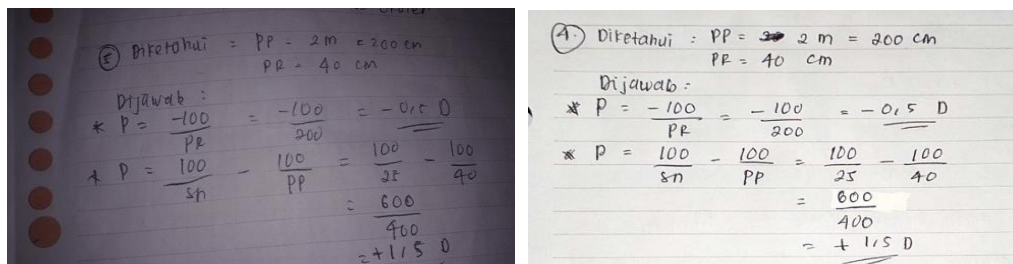 5 Diketahui : PP = 2 m = 200 cm
PR = 40 cm
Dijawab :
* P = -100/PR = -100/200 = -0,5 D
* P = 100/sn - 100/PP = 100/25 - 100/40
= 600/400
= +1,5 D
4. Diketahui : PP = 2 m = 200 cm
PR = 40 cm
Dijawab :
* P = -100/PR = -100/200 = -0,5 D
* P = 100/sn - 100/PP = 100/25 - 100/40
= 600/400
= +1,5 D